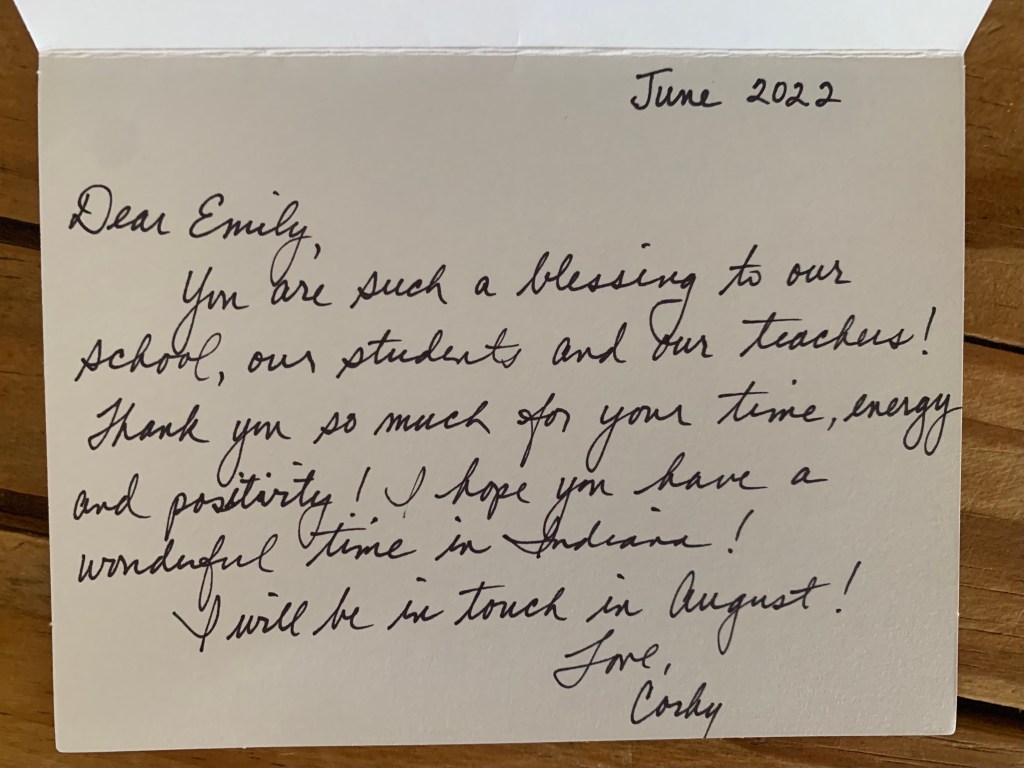 June 2022
Dear Emily,
You are such a blessing to our
school, our students and our teachers!
Thank you so much for your time, energy
and positivity! I hope you have a
wonderful time in Indiana!
I will be in touch in August!
Love,
Corky